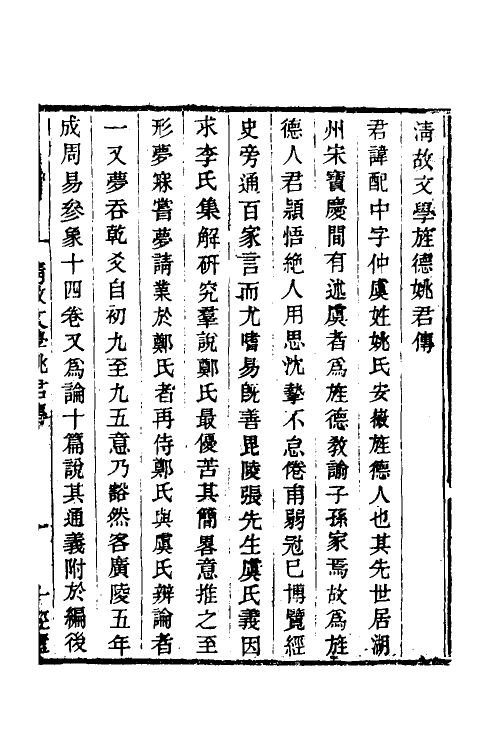 清故文學旌德姚君傳
君諱配中字仲虞姓姚氏安徽旌德人也其先世居湖
州宋寶慶間有述虞者為旌德教諭子孫家焉故為旌
德人君頴悟絶人用思沈摯不怠倦甫弱冠已博覽經
史旁通百家言而尤嗜易旣善毘陵張先生虞氏義因
求李氏集解研究羣說鄭氏最優苦其簡畧意推之至
形夢寐嘗夢請業於鄭氏者再侍鄭氏與虞氏辨論者
一又夢吞乾爻自初九至九五意乃豁然客廣陵五年
成周易參象十四卷又為論十篇說其通義附於編後
清故文學姚君傳
一